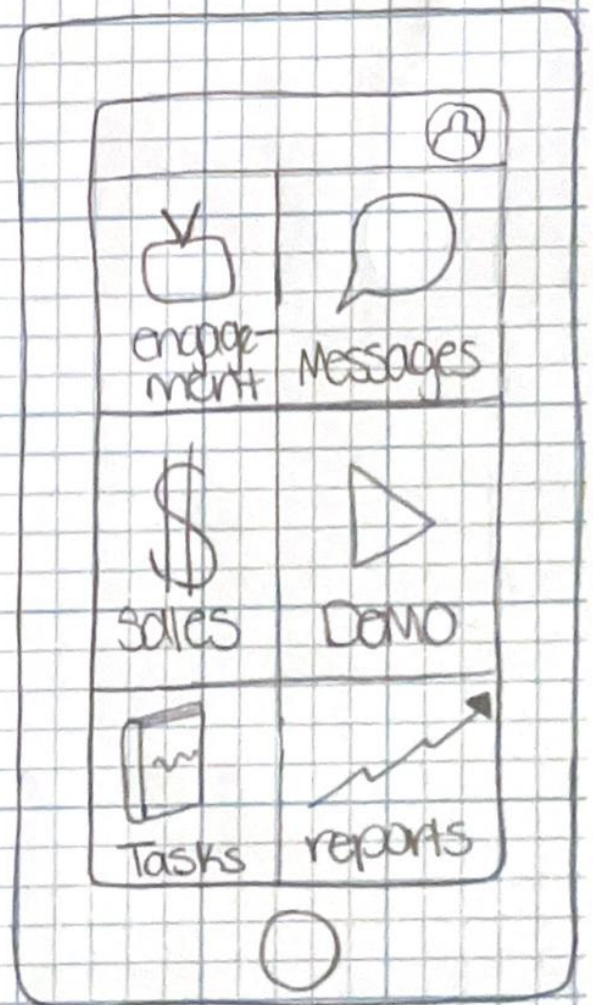 engage-
ment
Messages
$
Sales
DEMO
Tasks
reports